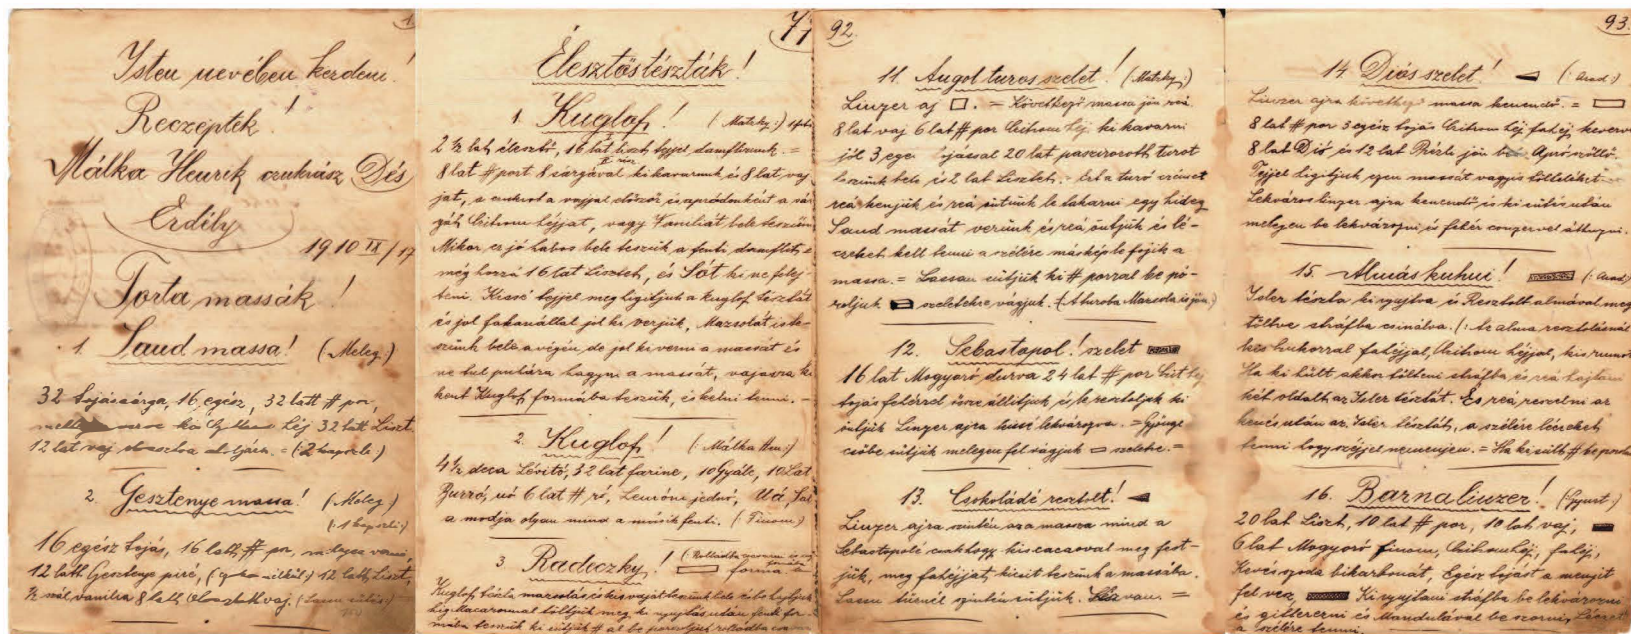 Isten nevében kezdem!
Reczeptek!
Málka Henrik czukrász Dés
Erdély
1910 IX/17
Torta massák!
1. Sand massa! (Meleg.)
32 tojássárga, 16 egész, 32 latt # por,
léj 32 latt Liszt
12 lat vaj
2. Gesztenye massa! (Meleg)
(: 1 kapszli:)
16 egész tojás, 16 latt # por,
12 latt Gesztenye piré, 12 latt Liszt,
½ vanilia 8 latt, vaj.
77
Élesztőstészták!
1. Kuglof! (Matzky:)
2 ½ lat élesztő, 16 lat liszt tejjel
8 lat # port 8 sárgával kikavarunk és 8 lat vaj
jat, a cukrot a vajjal először és apródonként a sár
gát, Citrom héjjat, vagy Vaniliát bele teszünk
Mikor ez jó habos bele teszük a fenti
még hozzá 16 lat Lisztet, és Sót ki ne felej-
teni. Kissé tejjel meg ligitjuk a kuglof tésztát
és jol fakanállal jol ki verjük, Mazsolát is te-
szünk bele a végén de jol ki verni a massát és
ne tul puhára hagyni a massát, vajazva ki
kent Kuglof formába teszük, és kelni tenni.
2. Kuglof! (Málka Hen:)
4 ½ deca Lévitó, 32 lat farine, 10 Gyálc, 10 Lat
Burró, uó 6 lat # ró, Lemóne jednó,
a modja olyan mind a másik fenti. (: Finom:)
3. Radeczky!
forma
Kuglof tészta
92.
11. Angol turos szelet! (Matzky:)
Linzer aj. = Következő massa jön reá
8 lat vaj 6 lat # por Citrom héj ki kavarni
jól 3 egé tojással 20 lat paszirozott turot
teszünk bele és 2 lat Lisztet. Ezt a turó crémet
reá kenjük és reá sütünk le takarni egy hideg
Sand massát verünk és reá öntjük és lé-
ceket kell tenni a szélére másképp lefojik a
massa. = Lassan sütjük ki # porral be po-
roljuk szeletekre vágjuk. (A turoba Mazsola is jön:)
12. Sebastopol! szelet
16 lat Mogyoró durva 24 lat # por Cit héj
tojás fehérrel össze állitjuk és le resztoljuk ki
öntjük Linzer ajra lekvározva. = Gyönge
csőbe sütjük melegen fel vágjuk szeletre. =
13. Csokoládé resztolt!
Linzer ajra szintén az a massa mind a
Sebastopolé csakhogy kis cacaoval meg fest-
jük, meg fahéjjat kicsit teszünk a massába.
Lassu tűznél szintén sütjük. van. =
93.
14. Diós szelet! (: Arad:)
Linzer ajra következő massa kenendő. =
8 lat # por 3 egész tojás Citrom héj fahéj keverve
8 lat Dió és 12 lat Brizli jön bele
Tejjel ligitjuk ezen massát vagyis tölteléket
Lekváros linzer ajra kenendő és ki sütés után
melegen be lekvározni és fehér conzervel áthuzni.
15. Almás kuhni! (: Arad:)
Isler tészta ki nyujtva és Resztolt almával meg
töltve stráfba csinálva. (: Az alma resztolásnál
kis cukorral fahéjjal, Citrom héjjal, kis rummal
Ha ki hült akkor tölteni stráfba és reá hajtani
két oldalt az Isler tésztát. És reá reszelni az
után az Isler tésztát, a szélére léceket
tenni hogy széjjel ne menjen. = Ha ki sült # be porolni
16. Barna linzer!
20 lat Liszt, 10 lat # por, 10 lat vaj,
6 lat Mogyoró finom, Citromhéj, fahéj,
Kevés szoda bikarbonát, Egész tojást a menjit
fel vesz, Ki nyujtani stráfba be lekvározni
és gitterezni és Mandulával be szorni, Léceket
a szélére tenni.